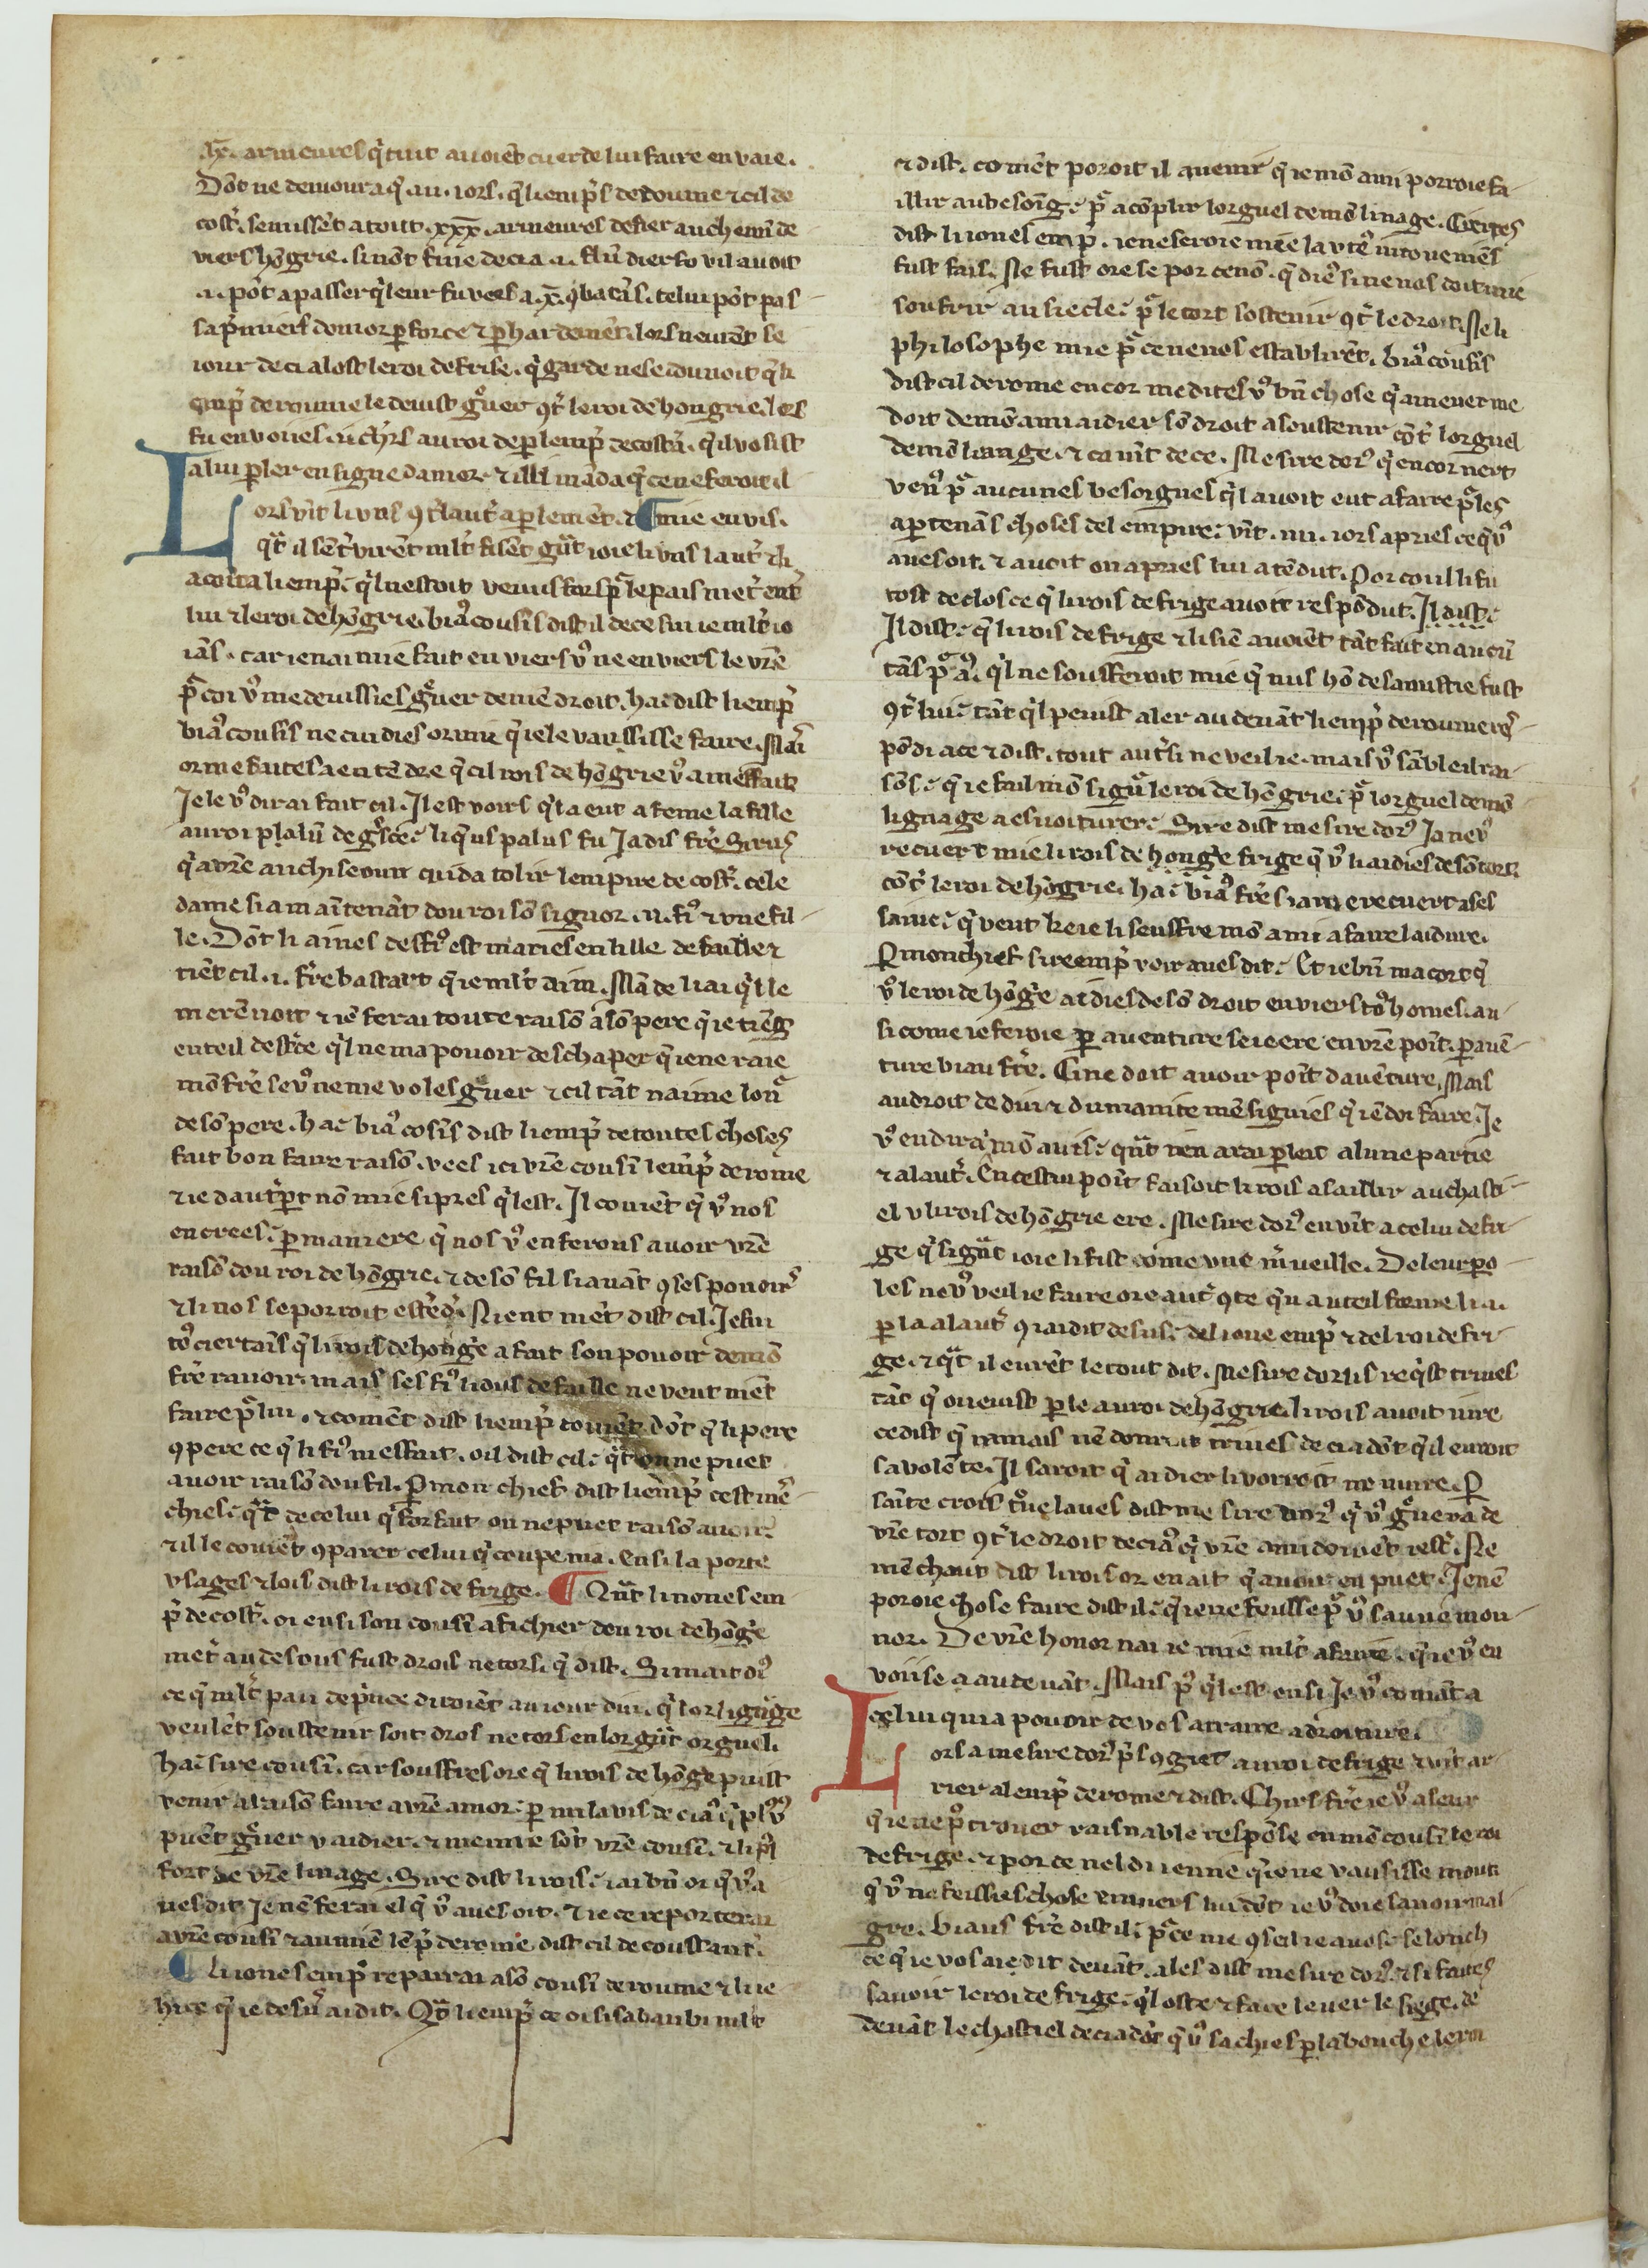 .x. armeures q̾ tuit auoiẽt cuer de lui faire en vaie.
Dõt ne demoura q̾ .iiii. iors. q̾ liemp̾s de roume ⁊ cil de
cost̾. semissẽt a tout .xxx. armeures de fier au chemĩ de
viers hõgrie. si nõt fine deci a .i. flũ dierfo v il auoit
.i. põt a passer q̾ leur fu vees a .x. ꝯbatãs. celui põt pas
sa p̾miers domor ꝑ force ⁊ ꝑ hardemẽt. lors neurẽt se
iour deci a lost le roi de frise. q̾ garde ne se dounoit q̾ li
emp̾ de roume le deuist gͣuer ꝯt̾ le roi de hongrie. lors
fu enuoies .ii. ch̾rs au roi de ꝑ lemp̾ de cost̾. q̾l vosist
a lui ꝑler en signe damor. ⁊ illi mãda q̾ ce ne feroit il
mie enuis.
Lors vĩt li vns ꝯt̾ laut̾ a ꝑlemẽt. ⁊
qͣt il sẽt̾virẽt ml̾t fisẽt gͣt ioie li vns laut̾ ⁊ li
aconta liemp̾. q̾l nestoit venus fors pͣ le pais met̾ ent̾
lui ⁊ le roi de hõgrie. biaꝯ cousĩs dist il de ce sui ie ml̾t io
iãs. car ie nai mie fait en viers vꝯ ne en viers le vr̃e
pͣ coi vꝯ me deuissies gͣuer de mẽ droit. ha dist liemp̾
biaꝯ cousĩs ne cuidies or mie q̾ ie le vausisse faire. Mai
or me faites a entẽdre q̾ cil rois de hõgrie vꝯ a meffait
Je le vꝯ dirai fait cil. Il est voirs q̾l a eut a feme la fille
au roi palus de g̾sce. li q̾us palus fu Jadis fr̃e Sirus
q̾ a vr̃e anchiseour cuida tolir lempire de cost̾. cele
dame si a maĩtenãt dou roi sõ signor .ii. fiꝯ ⁊ vne fil
le. Dõt li aines des fiꝯ est maries en lille de faille ⁊
tiẽt cil .i. fr̃e bastart q̾ ie ml̾t aim. Mãde li ai q̾l le
me rẽuoit ⁊ iẽ ferai toute raisõ a sõ pere q̾ ie tiẽg
en teil destr̾ce q̾l ne ma pouoir deschaper q̾ ie ne raie
mõ fr̃e se vꝯ ne me voles gͣuer ⁊ cil tãt naime lonꝯ
de sõ pere. ha biaꝯ cosĩs dist liemp̾ de toutes choses
fait bon faire raisõ. vees ici vr̃e cousĩ lemp̾ de rome
⁊ ie daut̾ ꝑt nõ mie si pres q̾l est. Il couiẽt q̾ vꝯ nos
en crees. ꝑ maniere q̾ nos vꝯ en ferons auoir vr̃e
raisõ dou roi de hõgrie. ⁊ de sõ fil si auãt ꝯ ses pouoirs
⁊ li nos se porroit estẽdr̾. Nient mẽt dist cil. Je sui
toꝯ ciertaĩs q̾ li rois de hong̾e a fait son pouoir de mõ
fr̃e rauoir. mais ses fiꝯ li dus de faille ne veut niẽt
faire pͣ lui. ⁊ comẽt dist liemp̾ couiẽt dõt q̾ li pere
ꝯpere ce q̾ li fiꝯ meffait. oil dist cil. qͣt on ne puet
auoir raisõ dou fil. P mon chief dist liemp̾ cest mẽ
chies. qͣt de celui q̾ forfait on ne puet raisõ auoir.
⁊ ille couiẽt ꝯparer celui q̾ coupe na. Ensi la porte
vsages ⁊ lois dist li rois de frige. ¶ Qͣt li iones em
p̾ de cost̾. oi ensi son cousĩ afichier dou roi de hõg̾e
met̾ au desous fust drois ne tors. q̾ dist. Si mait diꝯ
ce q̾ ml̾t pau de p̾nce diroiẽt au iour dui. q̾ lor lignage
veulẽt soustenir soit dros ne tors en lor gͣt orguel.
ha sire cousĩ. car souffres ore q̾ li rois de hõg̾e puist
venir a raisõ faire a vr̃e amor. ꝑ mi lauis de ciaꝯ q̾ plꝯ vꝯ
puẽt gͣuer v aidier. ⁊ meime sõt vr̃e cousĩ. ⁊ li plꝯ
fort de vr̃e linage. Sire dist li rois. iai bñ oi q̾ vꝯ a
ues dit Je nẽ ferai el q̾ vꝯ aues oit. ⁊ ie ce reporterai
a vr̃e cousĩ ⁊ au miẽ lẽp̾ de rome. dist cil de coustant̾.
¶ Li iones emp̾ reparrai a sõ cousĩ de roume ⁊ li re
hite q̾ ie desuꝯ ai dit. Qͣt liemp̾ ce oi si sabaubi ml̾t
⁊ dist. comẽt poroit il auenir q̾ ie mõ ami porroie fa
illir au besoĩg. pͣ acõplir lorguel de mõ linage. Ciertes
dist li iones emp̾. ie ne seroie mie la vtẽ incouenies
fust fais. Ne fust ore se por ce nõ. q̾ diex si ne nos doit mie
soufrir au siecle. pͣ le tort sostenir ꝯt̾ le droit. Ne li
philosophe mie pͣ ce ne nos establirẽt. biaꝯ cousĩs
dist cil de rome encor me dites vꝯ bñ chose q̾ amener me
doit de mõ ami aidier sõ droit a soustenir cõt̾ lorguel
de mõ linage. ⁊ cõuĩt de ce. Mesire dorꝯ q̾ encor nert
venꝯ pͣ aucunes besoignes q̾l auoit eut a faire pͣ les
apertenãs choses del empire. vĩt .iiii. iors apries ce q̾ vꝯ
aues oit. ⁊ auoit on apries lui atẽdut. Por cou li fu
tost desclos ce q̾ li rois de frige auoit respõdut. Il dist.
Il dist. q̾ li rois de frige ⁊ li siẽ auoiẽt tãt fait en aucũ
tãs pͣ aꝯ. q̾l ne soufferoit mie q̾ nus hõ de sa mastrie fust
ꝯt̾ lui. tãt q̾l peuist aler au deuãt liemp̾ de roume res
põdi a ce ⁊ dist. tout aut̾si ne veil ie. mais vꝯ sãble il rai
sõs. q̾ ie fail mõ signͣ le roi de hõgrie. pͣ lorguel de mõ
lignage a esuoiturer. Sire dist mesire dorꝯ Ja ne vꝯ
recuert mie li rois de hong̾e frige q̾ vꝯ li aidies de sõ tort
cõt̾ le roi de hõgrie. ha biaꝯ fr̃e sia me recuert a ses
saine. q̾ veut ke ie li seuffre mõ ami a faire laidure.
P mon chief sire emp̾ voir aues dit. Et ie bñ macort q̾
vꝯ le roi de hõg̾e aidies de sõ droit en viers toꝯ homes. au
si come ie feroie ꝑ auenture se ie ere en vr̃e poĩt. ꝑ auẽ
ture biau fr̃e. Ci ne doit auoir poĩt dauẽture. Mais
au droit de diu ⁊ dumanite mẽsignies q̾ iẽ doi faire. Je
vꝯ en dirai mõ auis. qͣt iẽn arai ꝑleit a lune partie
⁊ a laut̾. En cestui poĩt faisoit li rois asaillir au chasti
el v li rois de hõgrie ere. Mesire dorꝯ en vĩt a celui de fri
ge q̾ si gͣt ioie li fist come vne m̾ueille. De leur paro
les ne vꝯ veil ie faire ore aut̾ ꝯte q̾n auteil forme li .i.
ꝑla a laut̾ ꝯ iai dit desus. del ione emp̾ ⁊ del roi de fri
ge. ⁊ qͣt il eurẽt le tout dit. Mesire dorus req̾st triues
tãt q̾ on euist ꝑle au roi de hõgrie. li rois auoit iure
ce dist q̾ iamais nẽ donroit triues deci a dõt q̾ il en roit
sa volẽte. Il saroit q̾ aidier li vorroit ne nuire. P
saĩte crois trͦue laues dist mesire dorꝯ. q̾ vꝯ gͣuera de
vr̃e tort ꝯt̾ le droit de ciaꝯ q̾ vr̃e ami doiuẽt estr̾. Ne
mẽ chaut dist li rois or en ait q̾ auoir en puet. Je nẽ
poroie chose faire dist il. q̾ ie ne fesisse pͣ vꝯ sauue mon
nor. De vr̃e honor nai ie mie ml̾t a faire. q̾ ie vꝯ en
voiise a au deuãt. Mais pꝯ q̾l est ensi Je vꝯ comãt a
celui qui a pouoir de vos atraire a droiture.
Lors a mesire dorꝯ pͥs ꝯgiet au roi de frige ⁊ vĩt ar
rier a lemp̾ de rome ⁊ dist. Chirs fr̃e ie vꝯ aseur
q̾ ie ne pꝯ trouer raisnable respõse en mẽ cousĩ le roi
de frige. ⁊ por ce nel di ie mie q̾ ie ne vausisse mout
q̾ vꝯ ne feissies chose enuiers lui dõt ie vꝯ doie sauoir mal
gre. biaus fr̃e dist il. pͣ ce me ꝯseil ie a uos. selonch
ce q̾ ie vos aie dit deuãt. ales dist mesire dorꝯ. ⁊ si faites
sauoir le roi de frige. q̾l oste ⁊ face leuer le siege. de
deuãt le chastiel deci a dõt q̾ vꝯ sachies ꝑ la bouche le roi